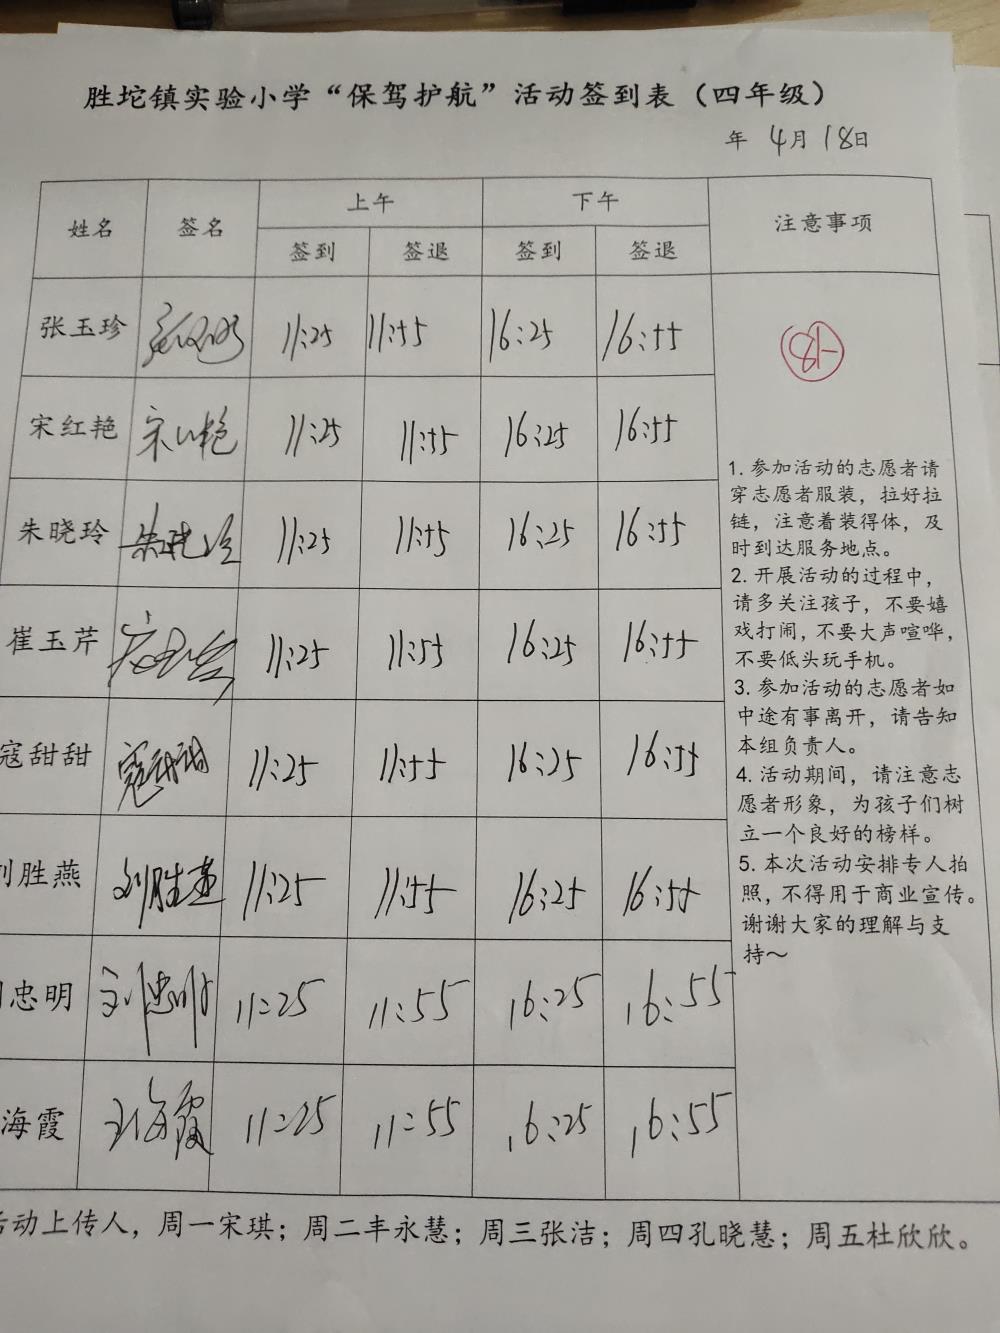 胜坨镇实验小学“保驾护航”活动签到表（四年级）
年 4月18日
姓名 签名 上午 下午 注意事项
签到 签退 签到 签退
张玉珍 11:25 11:55 16:25 16:55
宋红艳 宋红艳 11:25 11:55 16:25 16:55
朱晓玲 朱晓玲 11:25 11:55 16:25 16:55
崔玉芹 11:25 11:55 16:25 16:55
寇甜甜 寇甜甜 11:25 11:55 16:25 16:55
刘胜燕 刘胜燕 11:25 11:55 16:25 16:55
忠明 刘忠明 11:25 11:55 16:25 16:55
海霞 王海霞 11:25 11:55 16:25 16:55
1. 参加活动的志愿者请
穿志愿者服装，拉好拉
链，注意着装得体，及
时到达服务地点。
2. 开展活动的过程中，
请多关注孩子，不要嬉
戏打闹，不要大声喧哗，
不要低头玩手机。
3. 参加活动的志愿者如
中途有事离开，请告知
本组负责人。
4. 活动期间，请注意志
愿者形象，为孩子们树
立一个良好的榜样。
5. 本次活动安排专人拍
照，不得用于商业宣传。
谢谢大家的理解与支
持～
活动上传人，周一宋琪；周二丰永慧；周三张洁；周四孔晓慧；周五杜欣欣。